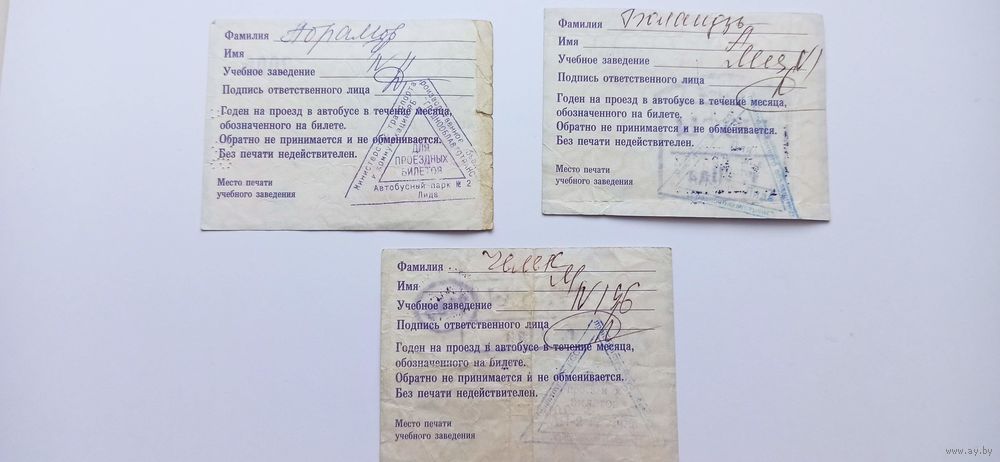 Фамилия Абрамов
Имя
Учебное заведение
Подпись ответственного лица
Годен на проезд в автобусе в течение месяца,
обозначенного на билете.
Обратно не принимается и не обменивается.
Без печати недействителен.
Место печати
учебного заведения
Министерство транспорта
и коммуникаций РБ
ДЛЯ
ПРОЕЗДНЫХ
БИЛЕТОВ
Автобусный парк № 2
Лида
Фамилия
Имя А
Учебное заведение
Подпись ответственного лица
Годен на проезд в автобусе в течение месяца,
обозначенного на билете.
Обратно не принимается и не обменивается.
Без печати недействителен.
Место печати
учебного заведения
Фамилия Челек
Имя М
Учебное заведение
Подпись ответственного лица
Годен на проезд в автобусе в течение месяца,
обозначенного на билете.
Обратно не принимается и не обменивается.
Без печати недействителен.
Место печати
учебного заведения
www.ay.by